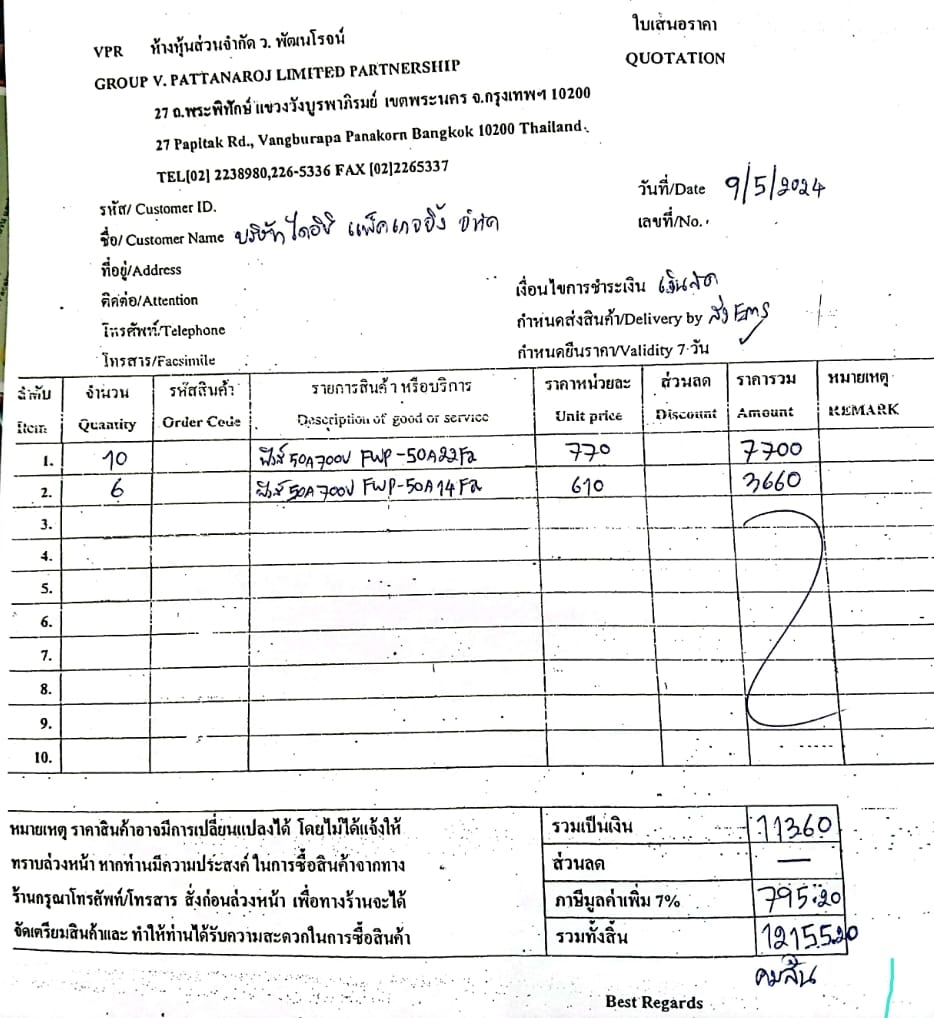 ใบเสนอราคา
VPR ห้างหุ้นส่วนจำกัด ว. พัฒนโรจน์
QUOTATION
GROUP V. PATTANAROJ LIMITED PARTNERSHIP
27 ถ.พระพิทักษ์ แขวงวังบูรพาภิรมย์ เขตพระนคร จ.กรุงเทพฯ 10200
27 Papitak Rd., Vangburapa Panakorn Bangkok 10200 Thailand.
TEL[02] 2238980,226-5336 FAX [02]2265337
วันที่/Date 9/5/2024
รหัส/ Customer ID.
เลขที่/No.
ชื่อ/ Customer Name บริษัท ไดอิชิ แพ็คเกจจิ้ง จำกัด
ที่อยู่/Address
เงื่อนไขการชำระเงิน เงินสด
ติดต่อ/Attention
กำหนดส่งสินค้า/Delivery by ส่ง Ems
โทรศัพท์/Telephone
กำหนดยืนราคา/Validity 7 วัน
โทรสาร/Facsimile
ลำดับ จำนวน รหัสสินค้า รายการสินค้า หรือบริการ ราคาหน่วยละ ส่วนลด ราคารวม หมายเหตุ
Item Quantity Order Code Description of good or service Unit price Discount Amount REMARK
1. 10 ฟิวส์ 50A700V FWP-50A22Fa 770 7700
2. 6 ฟิวส์ 50A700V FWP-50A14Fa 610 3660
3.
4.
5.
6.
7.
8.
9.
10.
หมายเหตุ ราคาสินค้าอาจมีการเปลี่ยนแปลงได้ โดยไม่ได้แจ้งให้ รวมเป็นเงิน 11360
ทราบล่วงหน้า หากท่านมีความประสงค์ ในการซื้อสินค้าจากทาง ส่วนลด —
ร้านกรุณาโทรศัพท์/โทรสาร สั่งก่อนล่วงหน้า เพื่อทางร้านจะได้ ภาษีมูลค่าเพิ่ม 7% 795.20
จัดเตรียมสินค้าและ ทำให้ท่านได้รับความสะดวกในการซื้อสินค้า รวมทั้งสิ้น 12155.20
คมสัน
Best Regards